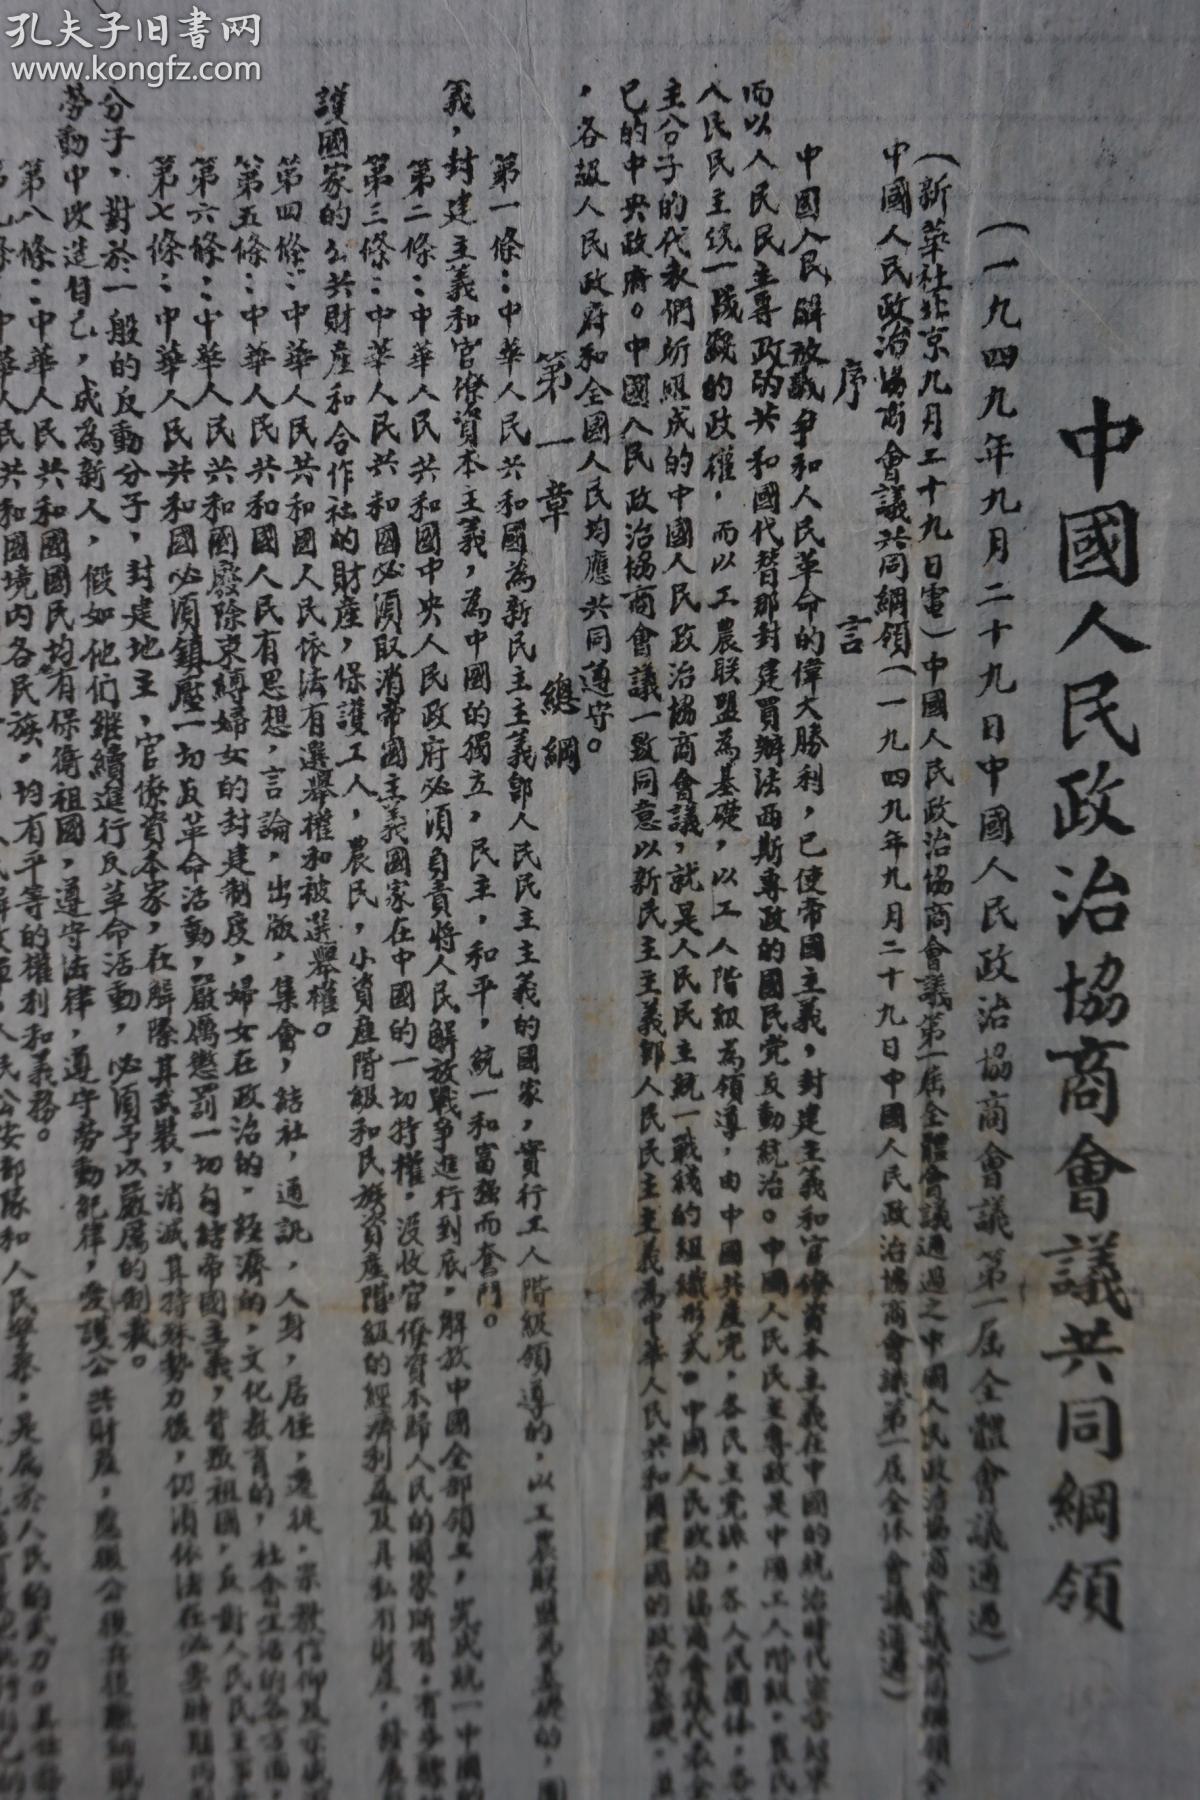 孔夫子旧書网
www.kongfz.com
中國人民政治協商會議共同綱領
（一九四九年九月二十九日中國人民政治協商會議第一屆全體會議通過）
（新華社北京九月二十九日電）中國人民政治協商會議第一屆全體會議通過之中國人民政治協商會議共同綱領全
中國人民政治協商會議共同綱領（一九四九年九月二十九日中國人民政治協商會議第一屆全体會議通過）
序 言
中國人民解放战争和人民革命的偉大勝利，已使帝國主義，封建主義和官僚資本主義在中國的統治時代宣告結束
而以人民民主專政的共和國代替那封建買辦法西斯專政的國民党反動統治。中國人民民主專政是中國工人階級，農民
人民民主統一战綫的政權，而以工農联盟為基礎，以工人階級為領導，由中國共產党，各民主党派，各人民團体，各
主分子的代表們所組成的中國人民政治協商會議，就是人民民主統一戰綫的組織形式。中國人民政治協商會議代表全
已的中央政府。中國人民政治協商會議一致同意以新民主主義即人民民主主義為中華人民共和國建國的政治基礎，
，各級人民政府和全國人民均應共同遵守。
第一章 總綱
第一條：中華人民共和國為新民主主義即人民民主主義的國家，實行工人階級領導的，以工農联盟為基礎的，團
義，封建主義和官僚資本主義，為中國的獨立，民主，和平，統一和富强而奮鬥。
第二條：中華人民共和國中央人民政府必須負責將人民解放戰争進行到底，解放中國全部領土，完成統一中國的
第三條：中華人民共和國必須取消帝國主義國家在中國的一切特權，没收官僚資本歸人民的國家所有，有步驟
護國家的公共財産和合作社的財産，保護工人，農民，小資産階級和民族資産階級的經濟利益及其私有財産，發展
第四條：中華人民共和國人民依法有選舉權和被選舉權。
第五條：中華人民共和國人民有思想，言論，出版，集會，結社，通訊，人身，居住，遷徙，宗教信仰及示威
第六條：中華人民共和國廢除束縛婦女的封建制度，婦女在政治的，經濟的，文化教育的，社會生活的各方面，
第七條：中華人民共和國必須鎮壓一切反革命活動，嚴厲懲罰一切勾結帝國主義，背叛祖國，反對人民民主事
分子，對於一般的反動分子，封建地主，官僚資本家，在解除其武裝，消滅其特殊勢力後，仍須依法在必要時期内
勞動中改造自己，成為新人，假如他们継續進行反革命活動，必須予以嚴厲的制裁。
第八條：中華人民共和國國民均有保衛祖國，遵守法律，遵守勞動紀律，愛護公共財産，應服公役兵役
第九條：中華人民共和國境内各民族，均有平等的權利和義務。
人民公安部隊和人民警察，是屬於人民的武力。